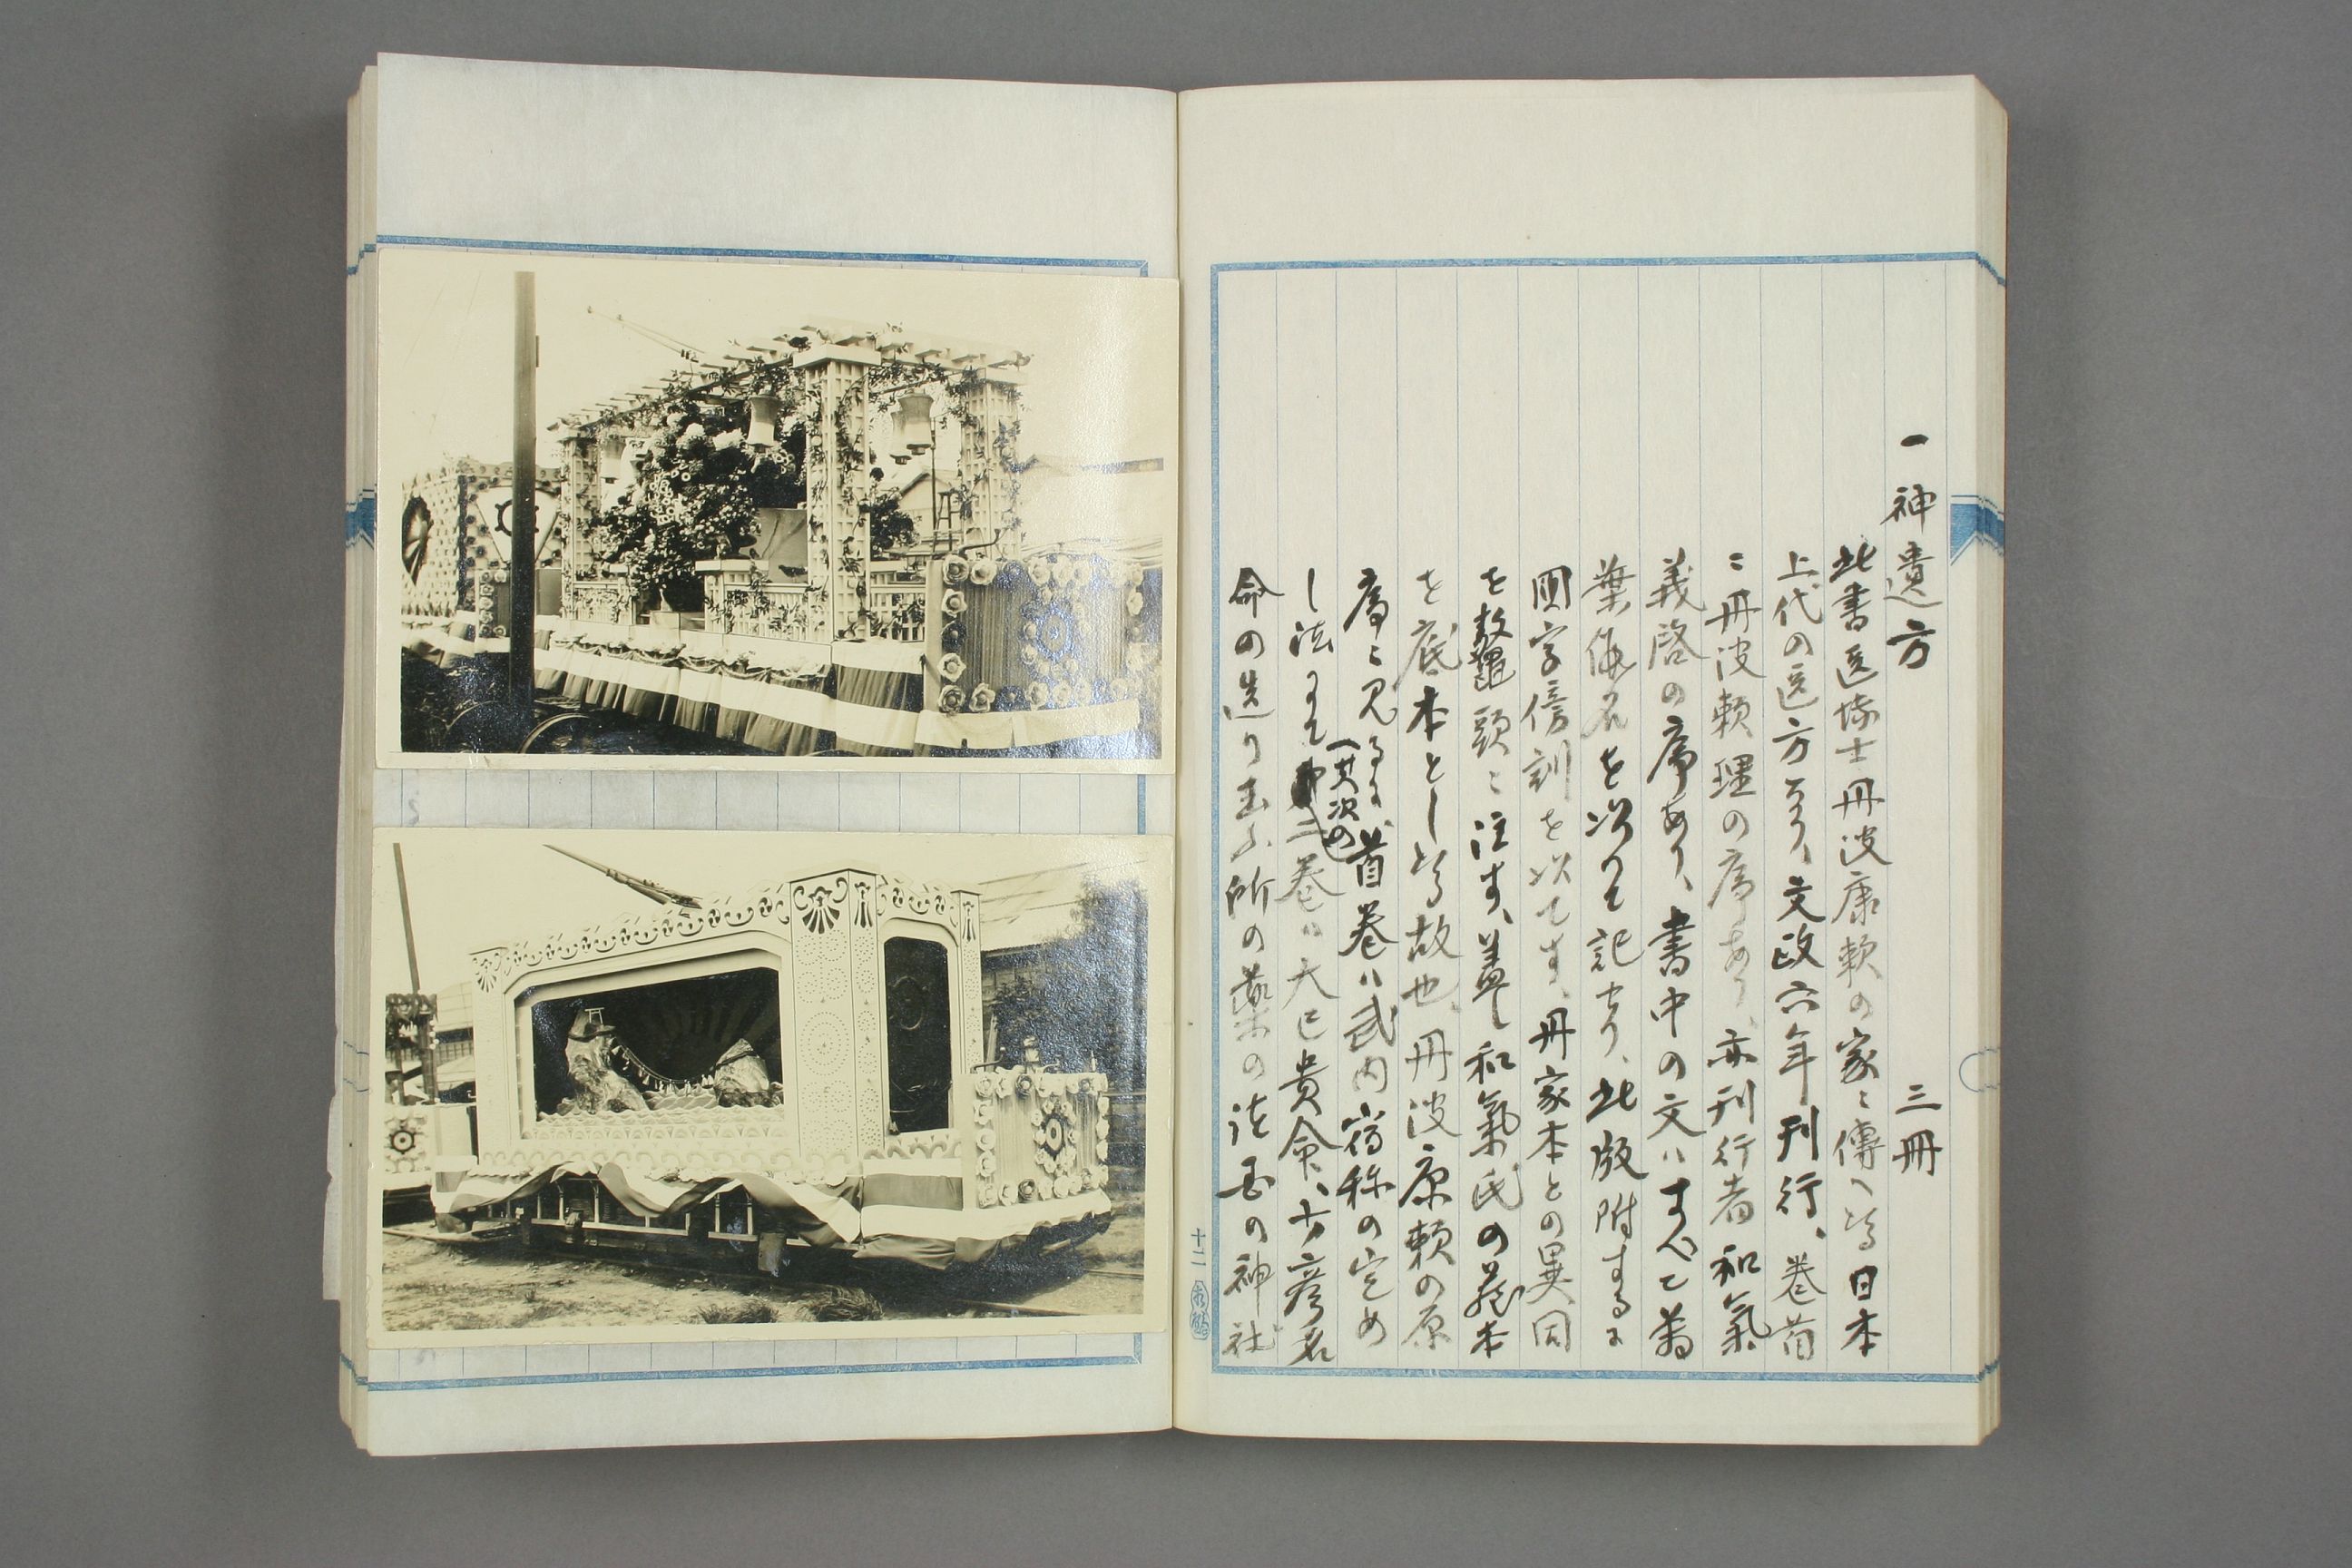 一神遺方 三冊
此書医博士丹波康頼の家ニ傳へたる日本
上代の医方なり、文政六年刊行、巻首
ニ丹波頼理の序あり、亦刊行者和氣
義啓の序あり、書中の文ハすべて萬
葉假名を以りて記せり、此版附するに
圓字傍訓を以てす、丹家本との異同
を数鼇頭ニ注す、蓋し和氣氏の蔵本
を底本としたる故也、丹波康頼の原
序ニ見るに、首巻ハ武内宿祢の定め
(其次の)
し法にて二巻ハ大己貴命、少彦名
命の造り玉ふ所の薬の法国の神社
十二